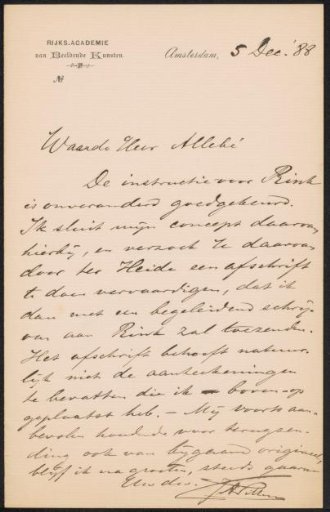 RIJKS-ACADEMIE
van Beeldende Kunsten
No
Amsterdam, 5 Dec. '88
Waarde Heer Allebé
De instructie voor Rink
is onveranderd goedgekeurd.
Ik sluit mijn concept daarvan
hierbij, en verzoek U daarvan
door ter Heide een afschrift
te doen vervaardigen, dat ik
dan met een begeleidend schrij-
ven aan Rink zal toezenden.
Het afschrift behoeft natuur-
lijk niet de aanteekeningen
te bevatten die ik boven op
geplaatst heb. - Mij voorts aan-
bevolen houdende voor terugzen-
ding ook van bijgaand origineel,
blijf ik na groeten, steeds gaarne
Uw dw.